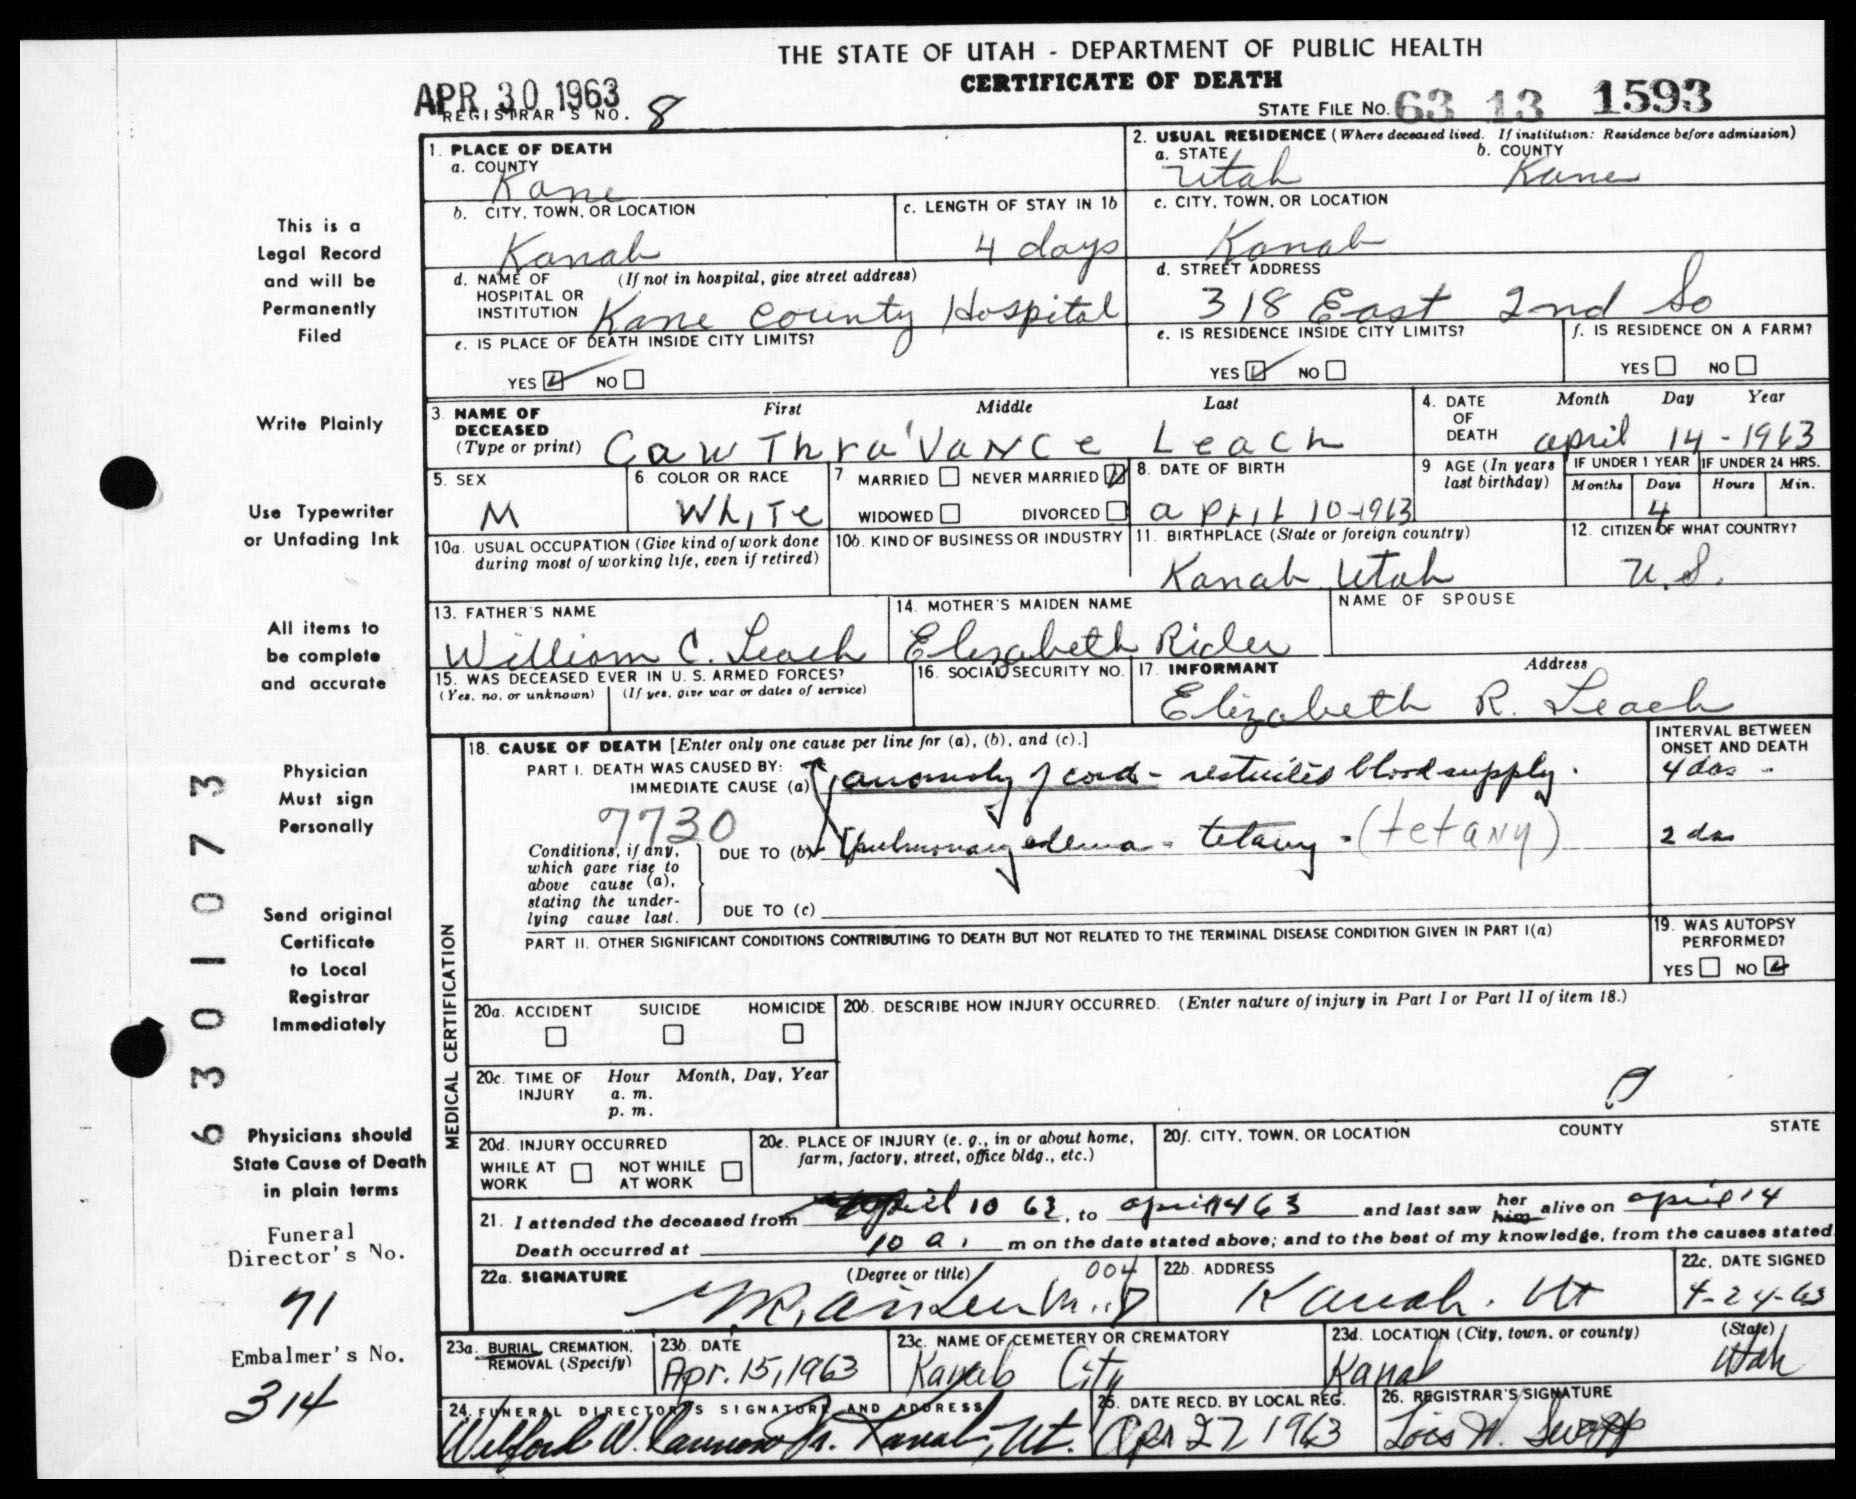 THE STATE OF UTAH - DEPARTMENT OF PUBLIC HEALTH
CERTIFICATE OF DEATH
APR 30 1963
REGISTRAR'S NO. 8
STATE FILE NO. 63 13 1593
This is a
Legal Record
and will be
Permanently
Filed
Write Plainly
Use Typewriter
or Unfading Ink
All items to
be complete
and accurate
Physician
Must sign
Personally
Send original
Certificate
to Local
Registrar
Immediately
Physicians should
State Cause of Death
in plain terms
Funeral
Director's No.
71
Embalmer's No.
314
6301073
1. PLACE OF DEATH
a. COUNTY
Kane
2. USUAL RESIDENCE (Where deceased lived. If institution: Residence before admission)
a. STATE b. COUNTY
Utah Kane
b. CITY, TOWN, OR LOCATION
Kanab
c. LENGTH OF STAY IN 1b
4 days
c. CITY, TOWN, OR LOCATION
Kanab
d. NAME OF (If not in hospital, give street address)
HOSPITAL OR
INSTITUTION Kane County Hospital
d. STREET ADDRESS
318 East 2nd So
e. IS PLACE OF DEATH INSIDE CITY LIMITS?
YES NO
e. IS RESIDENCE INSIDE CITY LIMITS?
YES NO
f. IS RESIDENCE ON A FARM?
YES NO
3. NAME OF First Middle Last
DECEASED
(Type or print) CawThra'Vance Leach
4. DATE Month Day Year
OF
DEATH april 14-1963
5. SEX
M
6. COLOR OR RACE
White
7 MARRIED NEVER MARRIED
WIDOWED DIVORCED
8. DATE OF BIRTH
april 10-1963
9 AGE (In years
last birthday)
IF UNDER 1 YEAR IF UNDER 24 HRS.
Months Days Hours Min.
4
10a. USUAL OCCUPATION (Give kind of work done
during most of working life, even if retired)
10b. KIND OF BUSINESS OR INDUSTRY
11. BIRTHPLACE (State or foreign country)
Kanab Utah
12. CITIZEN OF WHAT COUNTRY?
U.S.
13. FATHER'S NAME
William C. Leach
14. MOTHER'S MAIDEN NAME
Elizabeth Rider
NAME OF SPOUSE
15. WAS DECEASED EVER IN U.S. ARMED FORCES?
(Yes, no, or unknown) (If yes, give war or dates of service)
16. SOCIAL SECURITY NO.
17. INFORMANT Address
Elizabeth R. Leach
MEDICAL CERTIFICATION
18. CAUSE OF DEATH [Enter only one cause per line for (a), (b), and (c).]
INTERVAL BETWEEN
ONSET AND DEATH
PART I. DEATH WAS CAUSED BY:
IMMEDIATE CAUSE (a) anomoly of cord - restricted blood supply. 4 das -
7730
Conditions, if any,
which gave rise to
above cause (a),
stating the under-
lying cause last.
DUE TO (b) pulmonary edema - tetany - (tetany) 2 das
DUE TO (c)
PART II. OTHER SIGNIFICANT CONDITIONS CONTRIBUTING TO DEATH BUT NOT RELATED TO THE TERMINAL DISEASE CONDITION GIVEN IN PART I(a)
19. WAS AUTOPSY
PERFORMED?
YES NO
20a. ACCIDENT SUICIDE HOMICIDE
20b. DESCRIBE HOW INJURY OCCURRED. (Enter nature of injury in Part I or Part II of item 18.)
20c. TIME OF Hour Month, Day, Year
INJURY a. m.
p. m.
20d. INJURY OCCURRED
WHILE AT WORK NOT WHILE AT WORK
20e. PLACE OF INJURY (e. g., in or about home,
farm, factory, street, office bldg., etc.)
20f. CITY, TOWN, OR LOCATION COUNTY STATE
21. I attended the deceased from april 10 63, to april 14 63 and last saw her him alive on april 14
Death occurred at 10 a. m on the date stated above; and to the best of my knowledge, from the causes stated.
22a. SIGNATURE (Degree or title) 004
M.D
22b. ADDRESS
Kanab, Ut
22c. DATE SIGNED
4-24-63
23a. BURIAL, CREMATION,
REMOVAL (Specify)
23b. DATE
Apr. 15, 1963
23c. NAME OF CEMETERY OR CREMATORY
Kanab City
23d. LOCATION (City, town, or county) (State)
Kanab Utah
24. FUNERAL DIRECTOR'S SIGNATURE AND ADDRESS
Wilford W. Jr. Kanab, Ut.
25. DATE RECD. BY LOCAL REG.
Apr 27 1963
26. REGISTRAR'S SIGNATURE
Lois W.